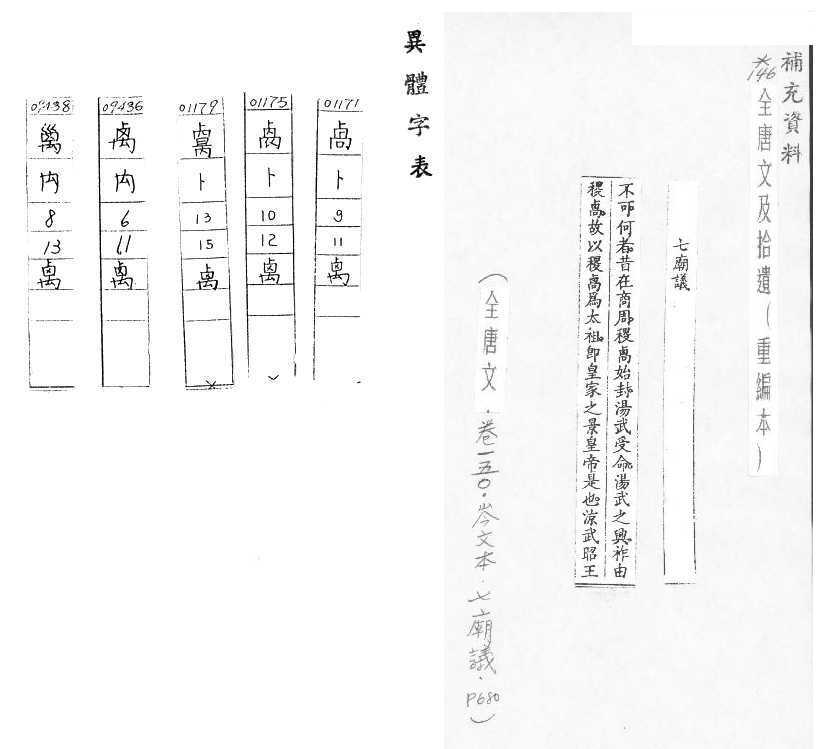 補充資料
146 全唐文及拾遺(重編本)
七廟議
不可何者昔在商周稷卨始封湯武受命湯武之興祚由
稷卨故以稷卨爲太祖即皇家之景皇帝是也涼武昭王
(全唐文.卷一五〇.岑文本.七廟議.P680)
異體字表
01171
卨
卜
9
11
01175
卜
10
12
01179
卜
13
15
09436
禸
6
11
09438
禸
8
13